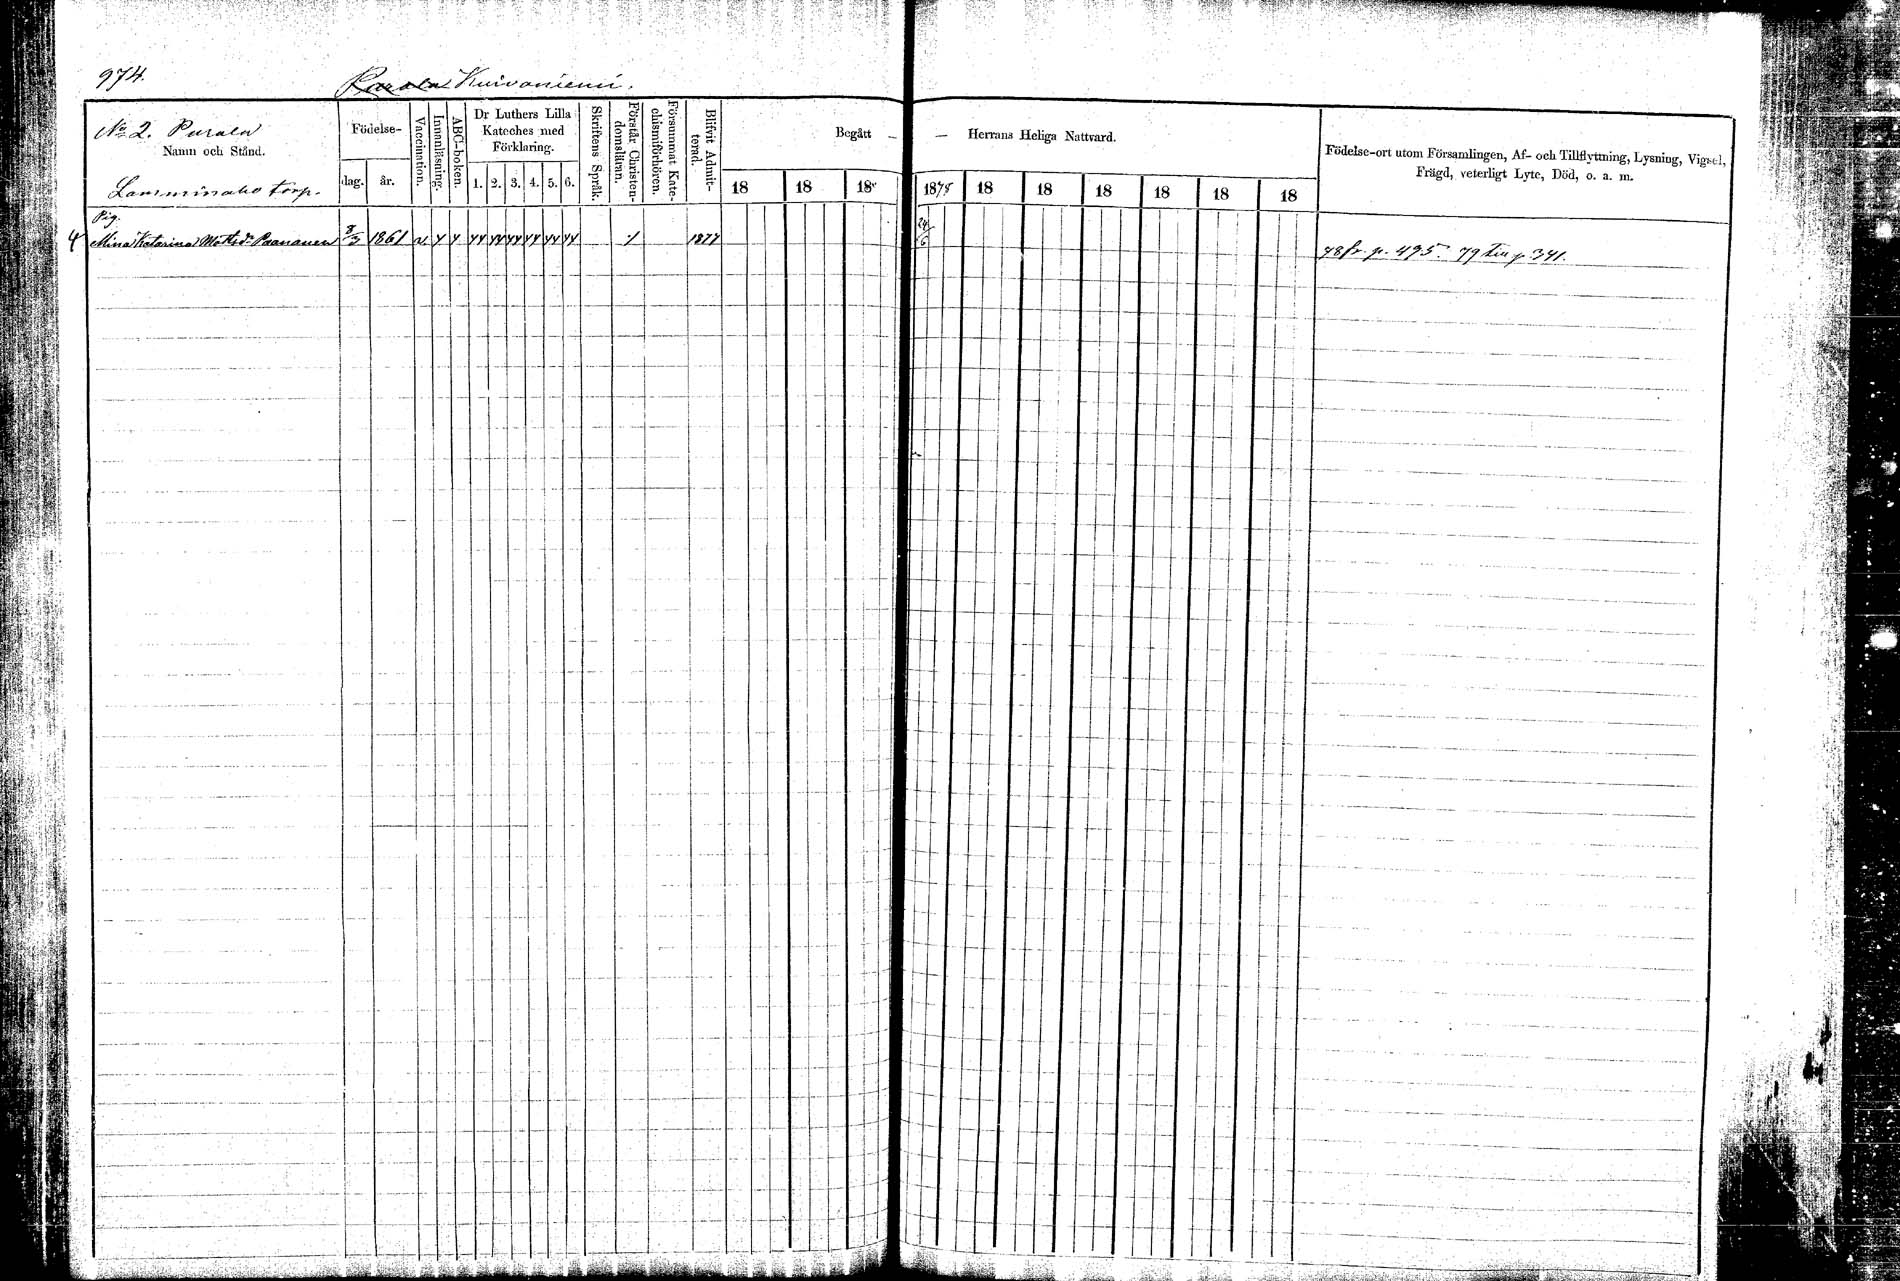 974.
Parola Kuivaniemi.
No 2. Purala
Namn och Stånd.
Lamminaho torp.
Födelse-
dag.
år.
Vaccination.
Innanläsning.
ABC-boken.
Dr Luthers Lilla
Kateches med
Förklaring.
1. 2. 3. 4. 5. 6.
Skriftens Språk.
Förstår Christen-
domsläran.
Försummat Kate-
chismiförhören.
Blifvit Admit-
terad.
Begått — — Herrans Heliga Nattvard.
18 18 18 1878 18 18 18 18 18 18
Födelse-ort utom Församlingen, Af- och Tillflyttning, Lysning, Vigsel,
Frägd, veterligt Lyte, Död, o. a. m.
Pig.
Mina Katarina Matsdr Paananen 8/3 1861 1877 24/6
78 fr p. 495. 79 till p. 341.